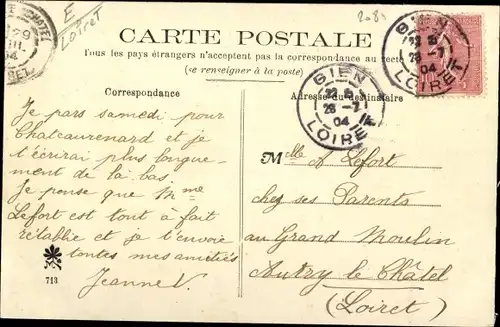 E
Loiret
CARTE POSTALE
Tous les pays étrangers n'acceptent pas la correspondance au recto
(se renseigner à la poste)
Correspondance
Je pars samedi pour
Chateaurenard et je
t'écrirai plus longue-
ment de la bas.
Je pense que Mme
Lefort est tout à fait
rétablie et je t'envoie
toutes mes amitiés
Jeanne V.
713
Adresse du destinataire
Mlle A Lefort
chez ses Parents
au Grand Moulin
Autry le Châtel
(Loiret)
GIEN
28 -7
04
LOIRET
GIEN
28 -7
04
LOIRET